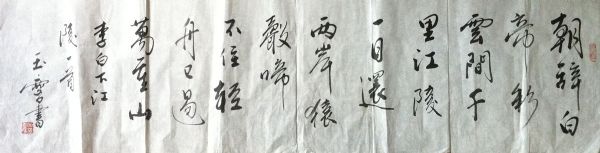 朝辭白
帝彩
雲間千
里江陵
一日還
两岸猿
聲啼
不住輕
舟已過
萬重山
李白下江
陵一首
玉雪書